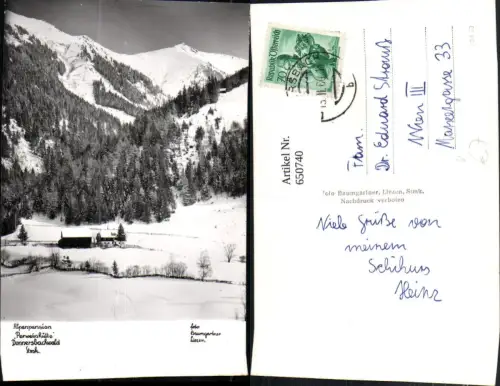 Alpenpension
"Perweinhütte"
Donnersbachwald
Stmk.
foto
Baumgartner
Liezen.
Republik Österreich
Artikel Nr.
650740
Fam.
Dr. Eduard Strauß
Wien III
33
foto Baumgartner, Liezen, Stmk.
Nachdruck verboten
Viele Grüße von
meinem
Schikurs
Heinz